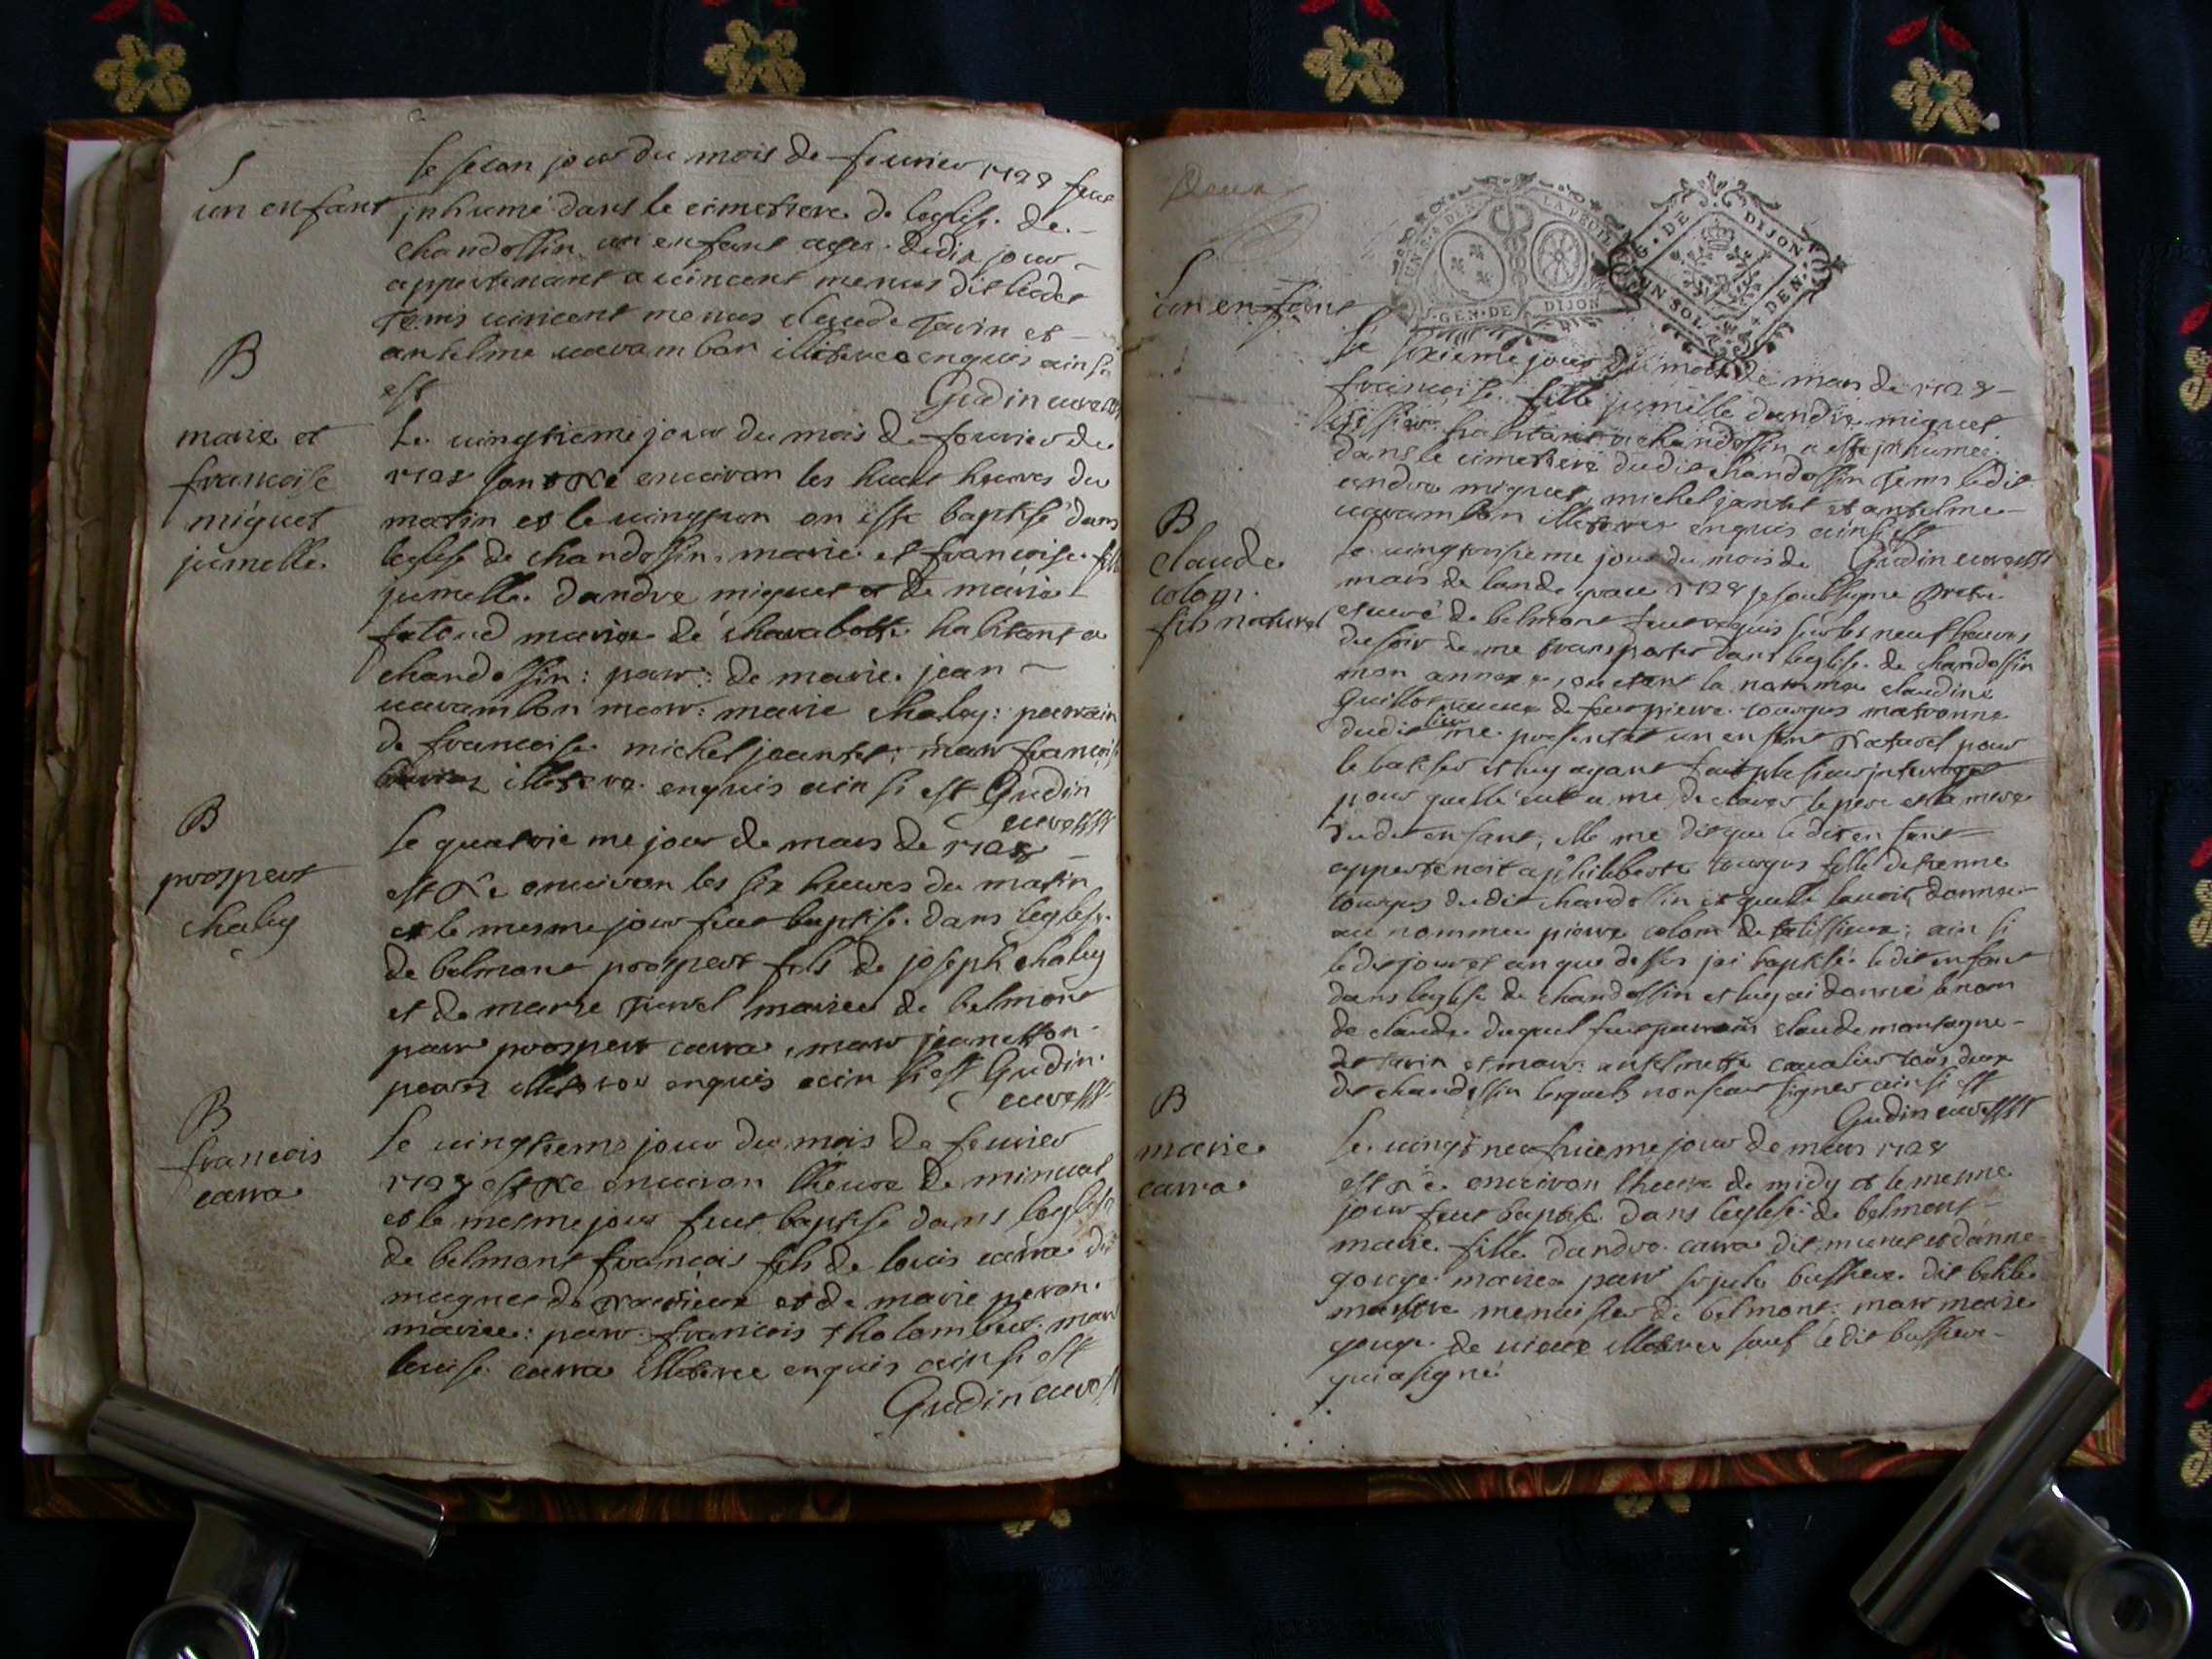 S
un enfant
le secon jour du mois de feurier 1728 feut
jnhumé dans le cimetiere de leglise de
chandossin un enfant agés de dix jour
appertenant a uincent menus dit
temis uincent menus claude tavin et
antelme uarambon illiteres enquis ainsi
est
Gudin cure
B
marie et
francoise
miguet
jumelle
Le uingtieme jour du mois de feurier de
1728 son Né enuiron les huit heures du
matin et le uingt un on este baptisé dans
leglise de chandossin marie et francoise
jumelle dandre miguet et de marie
marié de habitant a
chandossin : parr : de marie jean
uarambon marr : marie chaley : parrain
de francoise michel jeantet : marr francoise
illitere enquis ain si est Gudin
cure
B
prospert
chaley
le quatrie me jour de mars de 1728
est Né enuiron les six heures du matin
et le mesme jour feut baptisé dans leglise
de belmont prospert fils de joseph chaley
et de marie mariee de belmont
parr prospert carra, marr jeanetton
enquis ain si est Gudin
cure
B
francois
carra
le uingtieme jour du mois de feurier
1728 est Né enuiron lheure de minuit
et le mesme jour feut baptisé dans leglise
de belmont francois fils de louis carra dit
magnet de et de marie peron
mariee : parr francois tholombet marr
louise carra illiteree enquis ainsi est
Gudin cure
Deux
UN S. 4 DEN LA FEUIL
GEN. DE DIJON
G. DE DIJON
UN SOL 4 DEN.
S
un enfant
le sixieme jour du mois de mars de 1728
francoise fille jumelle dandre miguet
habitant a chandossin a esté jnhumée
dans le cimetiere dudit chandossin temis ledit
andre miguet, michel jantet et antelme
uarambon illiteres enquis ainsi est
Gudin cure
B
claude
colom
fils naturel
le uingt onsieme jour du mois de
mars de lan de grace 1728 je soubsigne pretre
et curé de belmont feut requis sur les neuf heures
du soir de me transporter dans leglise de chandossin
mon annexe, ou etant la nommée claudine
Guillot ueuue de feu pierre tourgus matronne
dudit lieu me presentat un enfant Naturel pour
le batiser et luy ayant fait plusieur
pour quelle eut a me declarer le pere et la mere
dudit enfant, elle me dit que ledit enfant
appertenoit a philiberte tourgus fille detienne
tourgus dudit chandossin et quelle lauoit donnée
au nommée pierre colom de ; ain si
ledit jour et an que dessus jai baptisé ledit enfant
dans leglise de chandossin et luy ai donné le nom
de claude duquel feut parrain claude montagne
dit tavin et marr : antelmette caualier tous deux
de chandossin lesquels non sceu signer ainsi est
Gudin cure
B
marie
carra
le uingt neufuieme jour de mars 1728
est Né enuiron lheure de midy et le mesme
jour feut baptisé dans leglise de belmont
marie fille dandre carra dit munet et danne
gouge mariés parr bussiere dit
maistre menuisier de belmont : marr marie
gouge de uieux illiteree sauf ledit bussiere
qui a signé